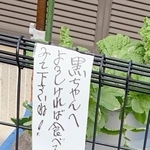 黒ちゃんへ
よろしければ食べて
みて下さいね!!